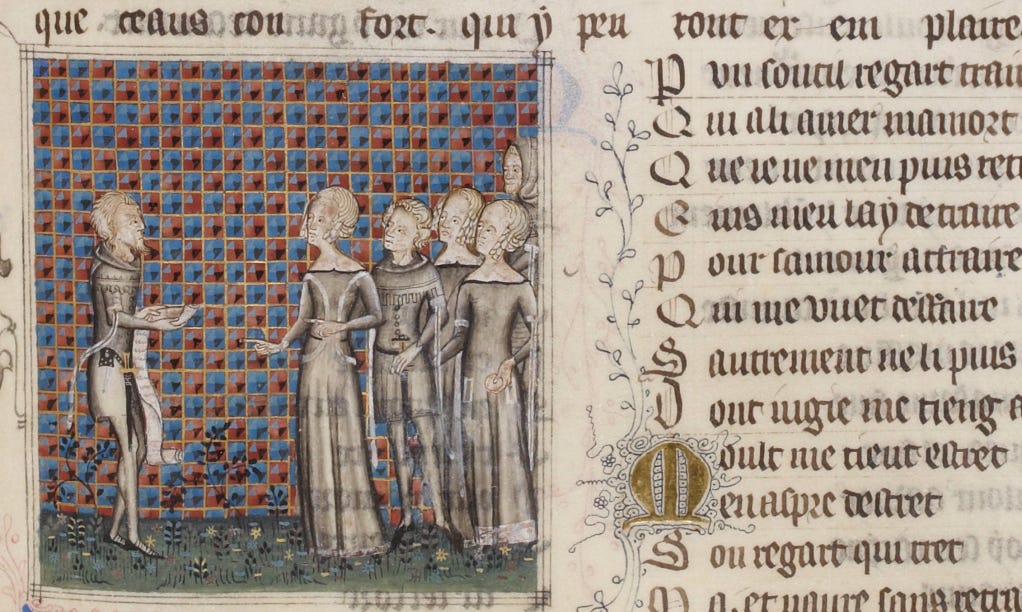 que ceaus con fort. qui y peu tout er em plaire
P vn soutil regart trai
Q ui a li amer mamort
Q ue ie ne men puis retr
men lay de traire
P our samour attraire
Q ui me vuet deffaire
S autrement ne li puis
D ont iugie me tieng a
Moult me tient estret
en aspre destret
S on regart qui tret
et naure sans retra